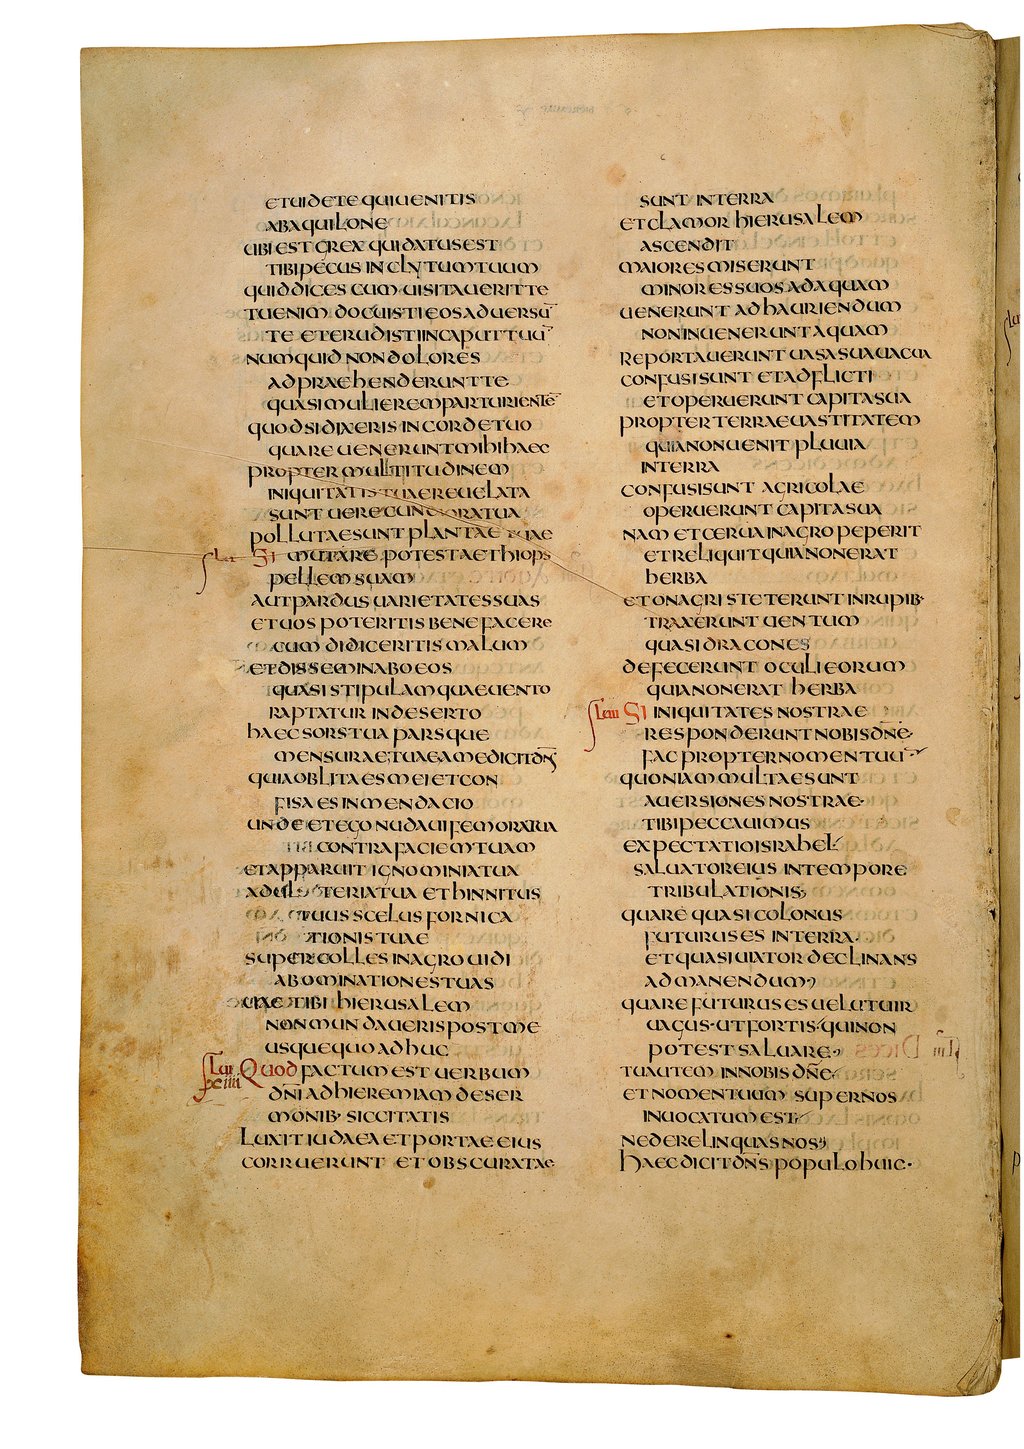 ETUIDETE QUIUENITIS
ABAQUILONE
UBI EST GREX QUI DATUS EST
TIBI PECUS INCLYTUM TUUM
QUID DICES CUM UISITAUERIT TE
TU ENIM DOCUISTI EOS ADUERSŪ
TE ET ERUDISTI IN CAPUT TUŪ
NUMQUID NON DOLORES
ADPRAEHENDERUNT TE
QUASI MULIEREM PARTURIENTĒ
QUOD SI DIXERIS IN CORDE TUO
QUARE UENERUNT MIHI HAEC
PROPTER MULTITUDINEM
INIQUITATIS TUAE REUELATA
SUNT UERECUNDIORA TUA
POLLUTAE SUNT PLANTAE TUAE
SI MUTARE POTEST AETHIOPS
PELLEM SUAM
AUT PARDUS UARIETATES SUAS
ET UOS POTERITIS BENEFACERE
CUM DIDICERITIS MALUM
ET DISSEMINABO EOS
QUASI STIPULAM QUAE UENTO
RAPTATUR IN DESERTO
HAEC SORS TUA PARSQUE
MENSURAE TUAE A ME DICIT DN̄S
QUIA OBLITA ES MEI ET CON
FISA ES IN MENDACIO
UNDE ET EGO NUDAUI FEMORA TUA
CONTRA FACIEM TUAM
ET APPARUIT IGNOMINIA TUA
ADULTERIA TUA ET HINNITUS
TUUS SCELUS FORNICA
TIONIS TUAE
SUPER COLLES IN AGRO UIDI
ABOMINATIONES TUAS
UAE TIBI HIERUSALEM
NON MUNDAUERIS POST ME
USQUEQUO ADHUC
QUOD FACTUM EST UERBUM
DN̄I AD HIEREMIAM DE SER
MONIB· SICCITATIS
LUXIT IUDAEA ET PORTAE EIUS
CORRUERUNT ET OBSCURATAE
SUNT IN TERRA
ET CLAMOR HIERUSALEM
ASCENDIT
MAIORES MISERUNT
MINORES SUOS AD AQUAM
UENERUNT AD HAURIENDUM
NON INUENERUNT AQUAM
REPORTAUERUNT UASA SUA UACUA
CONFUSI SUNT ET ADFLICTI
ET OPERUERUNT CAPITA SUA
PROPTER TERRAE UASTITATEM
QUIA NON UENIT PLUUIA
IN TERRA
CONFUSI SUNT AGRICOLAE
OPERUERUNT CAPITA SUA
NAM ET CERUA IN AGRO PEPERIT
ET RELIQUIT QUIA NON ERAT
HERBA
ET ONAGRI STETERUNT IN RUPIB·
TRAXERUNT UENTUM
QUASI DRACONES
DEFECERUNT OCULI EORUM
QUIA NON ERAT HERBA
SI INIQUITATES NOSTRAE
RESPONDERUNT NOBIS DN̄E·
FAC PROPTER NOMEN TUŪ
QUONIAM MULTAE SUNT
AUERSIONES NOSTRAE·
TIBI PECCAUIMUS
EXPECTATIO ISRAHEL
SALUATOR EIUS IN TEMPORE
TRIBULATIONIS
QUARE QUASI COLONUS
FUTURUS ES IN TERRA·
ET QUASI UIATOR DECLINANS
AD MANENDUM
QUARE FUTURUS ES UELUT UIR
UAGUS· UT FORTIS QUI NON
POTEST SALUARE
TU AUTEM IN NOBIS DN̄E
ET NOMEN TUUM SUPER NOS
INUOCATUM EST
NE DERELINQUAS NOS
HAEC DICIT DN̄S POPULO HUIC·